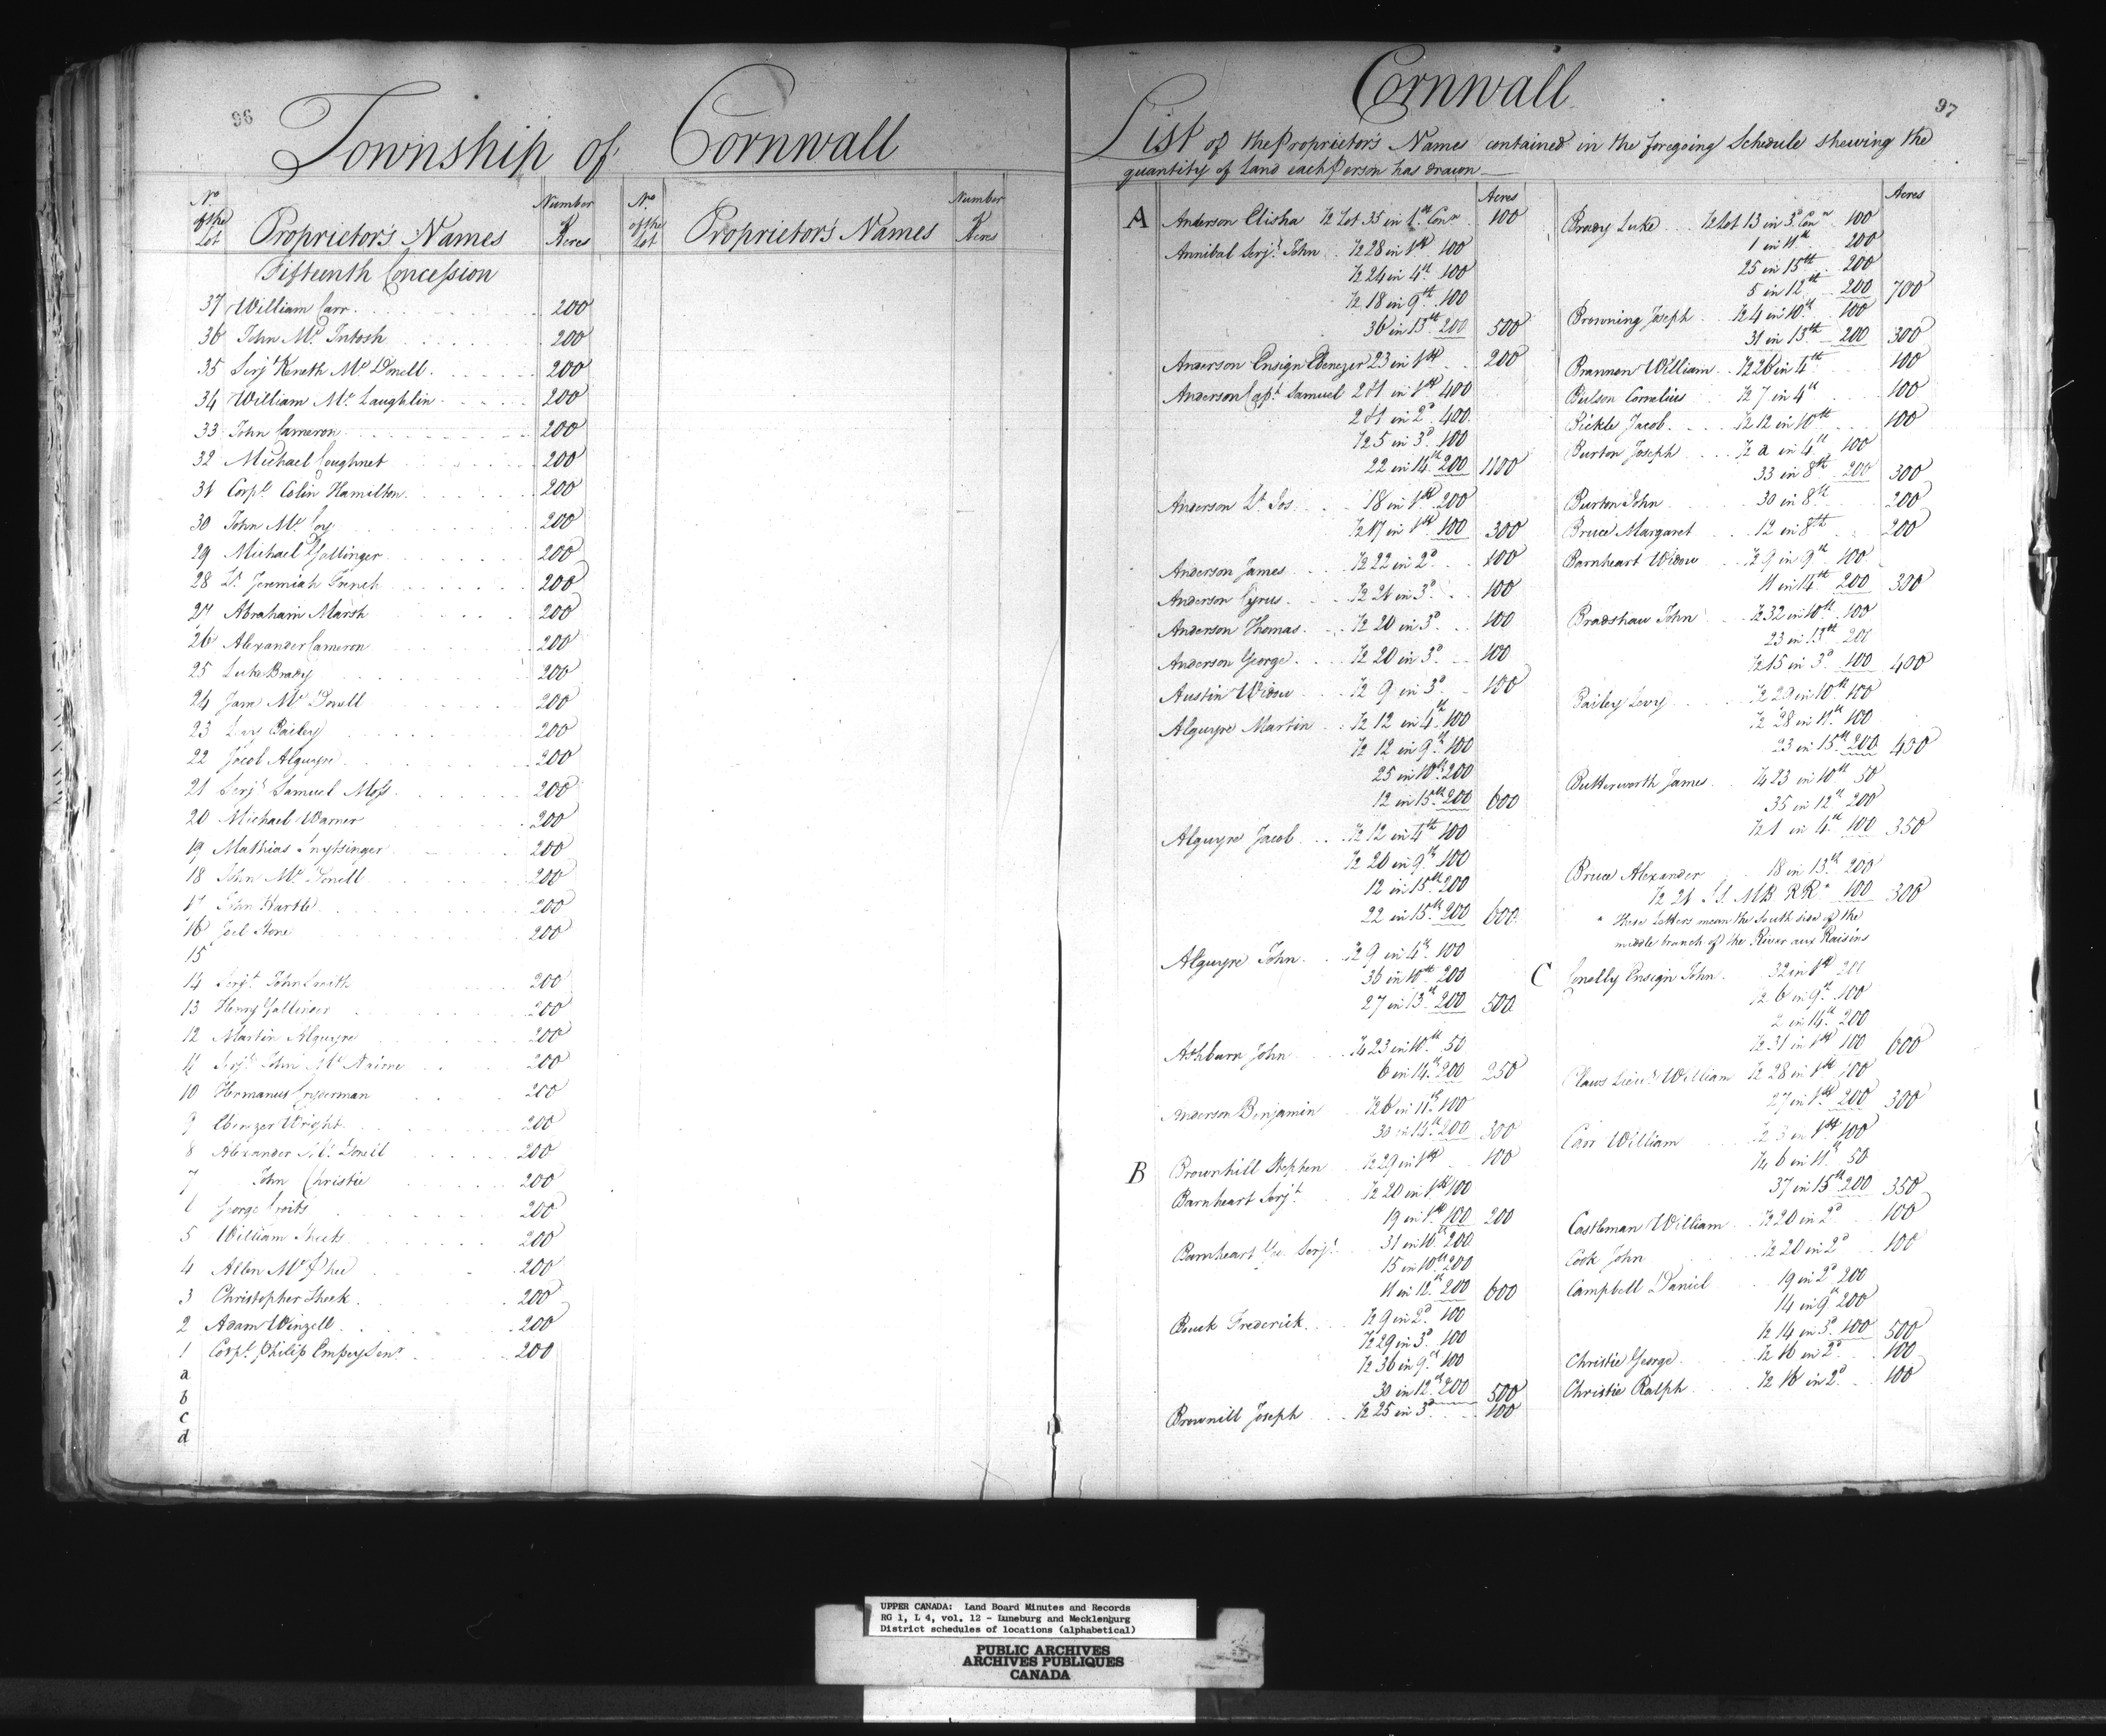 96
Township of Cornwall
No of the Lot Proprietor's Names Number Acres No of the Lot Proprietor's Names Number Acres
Fifteenth Concession
37 William Carr 200
36 John Mc Intosh 200
35 Serjt Keneth Mc Donell 200
34 William Mc Laughlin 200
33 John Cameron 200
32 Michael Coughnet 200
31 Corpl Colin Hamilton 200
30 John Mc Coy 200
29 Michael Gallinger 200
28 Lt Jeremiah French 200
27 Abraham Marsh 200
26 Alexander Cameron 200
25 Luke Brady 200
24 Jam Mc Donell 200
23 Levy Bailey 200
22 Jacob Alguyre 200
21 Serjt Samuel Moss 200
20 Michael Warner 200
19 Mathias Snytsinger 200
18 John Mc Donell 200
17 John Hartle 200
16 Joel Stone 200
15
14 Serjt John Smith 200
13 Henry Gallinger 200
12 Martin Alguyre 200
11 Serjt John Mc Nairne 200
10 Hermanus 200
9 Ebenezer Wright 200
8 Alexander Mc Donell 200
7 John Christie 200
6 George Croits 200
5 William Sheets 200
4 Allen Mc Phee 200
3 Christopher Sheek 200
2 Adam Winzell 200
1 Corpl Philip Empey Senr 200
a
b
c
d
97
Cornwall
List of the Proprietor's Names contained in the foregoing Schedule shewing the
quantity of Land each Person has drawn
Acres
A Anderson Elisha ½ Lot 35 in 1st Conn 100
Annibal Serjt John ½ 28 in 1st 100
½ 24 in 4th 100
½ 18 in 9th 100
36 in 13th 200 500
Anderson Ensign Ebenezer 23 in 1st 200
Anderson Capt Samuel 2 & 1 in 1st 400
2 & 1 in 2d 400
½ 5 in 3d 100
22 in 14th 200 1100
Anderson Lt Jos 18 in 1st 200
½ 17 in 1st 100 300
Anderson James ½ 22 in 2d 100
Anderson Cyrus ½ 21 in 3d 100
Anderson Thomas ½ 20 in 3d 100
Anderson George ½ 20 in 3d 100
Austin Widow ½ 9 in 3d 100
Alguyre Martin ½ 12 in 4th 100
½ 12 in 9th 100
25 in 10th 200
12 in 15th 200 600
Alguyre Jacob ½ 12 in 4th 100
½ 20 in 9th 100
12 in 15th 200
22 in 15th 200 600
Alguyre John ½ 9 in 4th 100
36 in 10th 200
27 in 13th 200 500
Ashburn John ¼ 23 in 10th 50
6 in 14th 200 250
Anderson Benjamin ½ 6 in 11th 100
30 in 14th 200 300
B Brownhill Stephen ½ 29 in 1st 100
Barnheart Serjt ½ 20 in 1st 100
19 in 1st 100 200
Barnheart Ge. Serjt 31 in 10th 200
15 in 10th 200
11 in 12th 200 600
Bouck Frederick ½ 9 in 2d 100
½ 29 in 3d 100
½ 36 in 9th 100
30 in 12th 200 500
Brownill Joseph ½ 25 in 3d 100
Acres
Brady Luke ½ Lot 13 in 3d Conn 100
1 in 11th 200
25 in 15th 200
5 in 12th 200 700
Browning Joseph ½ 4 in 10th 100
31 in 13th 200 300
Brannon William ½ 26 in 4th 100
Bulson Cornelius ½ 7 in 4th 100
Bickle Jacob ½ 12 in 10th 100
Burton Joseph ½ a in 4th 100
33 in 8th 200 300
Burton John 30 in 8th 200
Bruce Margaret 12 in 8th 200
Barnheart Widow ½ 9 in 9th 100
11 in 14th 200 300
Bradshaw John ½ 32 in 10th 100
23 in 13th 200
½ 15 in 3d 100 400
Bailey Levy ½ 29 in 10th 100
½ 28 in 11th 100
23 in 15th 200 400
Butterworth James ¼ 23 in 10th 50
35 in 12th 200
½ 1 in 4th 100 350
Bruce Alexander 18 in 13th 200
½ 21 S.S. M.B. R.R* 100 300
* These Letters mean the South side of the
middle branch of the River aux Raisins
C Conelly Ensign John 32 in 1st 200
½ 6 in 9th 100
2 in 14th 200
½ 31 in 1st 100 600
Claws Lieut William ½ 28 in 1st 100
27 in 1st 200 300
Carr William ½ 3 in 1st 100
¼ 6 in 11th 50
37 in 15th 200 350
Castleman William ½ 20 in 2d 100
Cook John ½ 20 in 2d 100
Campbell Daniel 19 in 2d 200
14 in 9th 200
½ 14 in 3d 100 500
Christie George ½ 16 in 2d 100
Christie Ralph ½ 16 in 2d 100
UPPER CANADA: Land Board Minutes and Records
RG 1, L 4, vol. 12 - Luneburg and Mecklenburg
District schedules of locations (alphabetical)
PUBLIC ARCHIVES
ARCHIVES PUBLIQUES
CANADA